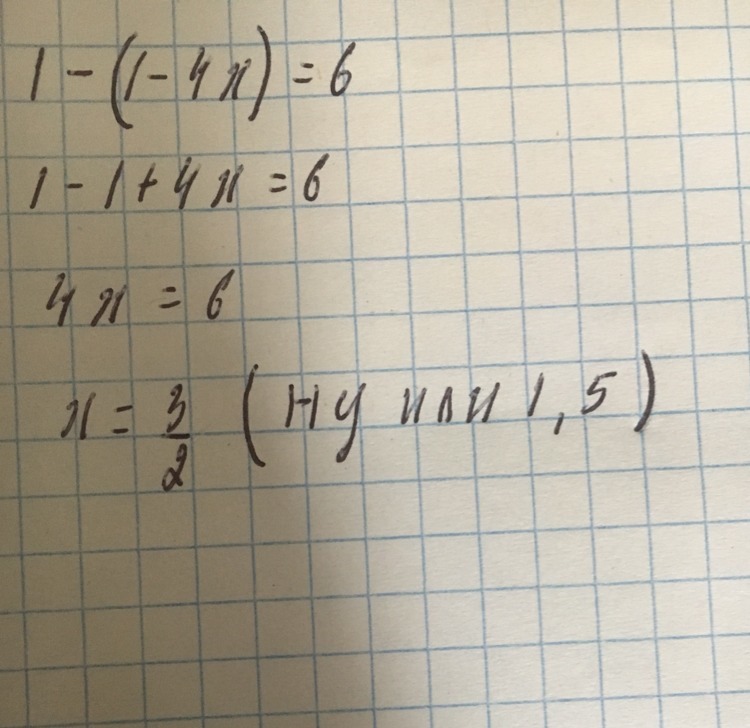 1 - (1 - 4x) = 6
1 - 1 + 4x = 6
4x = 6
x = 3/2 (ну или 1,5)